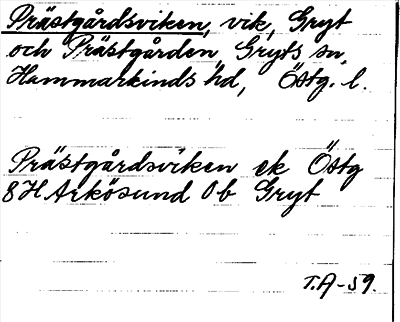 Prästgårdsviken, vik, Gryt
och Prästgården, Gryts sn,
Hammarkinds hd, Östg. l.
Prästgårdsviken ek Östg
8H Arkösund Ob Gryt
T.A-59.